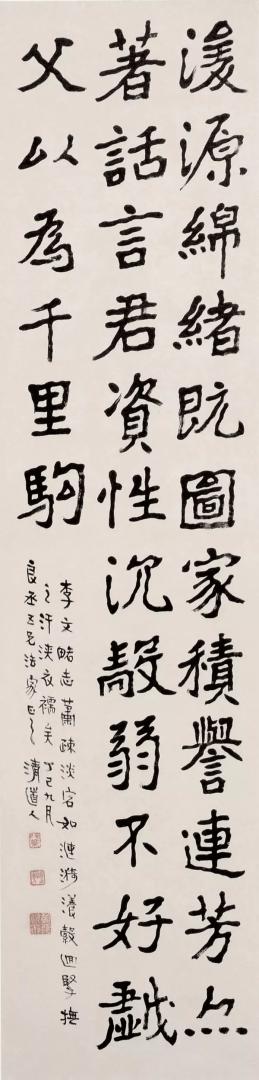 浚源綿緒既圖家積譽連芳亦
著話言君資性沉毅弱不好戲
父以為千里駒
李文略志蕭疎淡宕如漣漪瀁縠撫
之汗浹衣襦矣丁巳九月
良丞五兄法家正之清道人